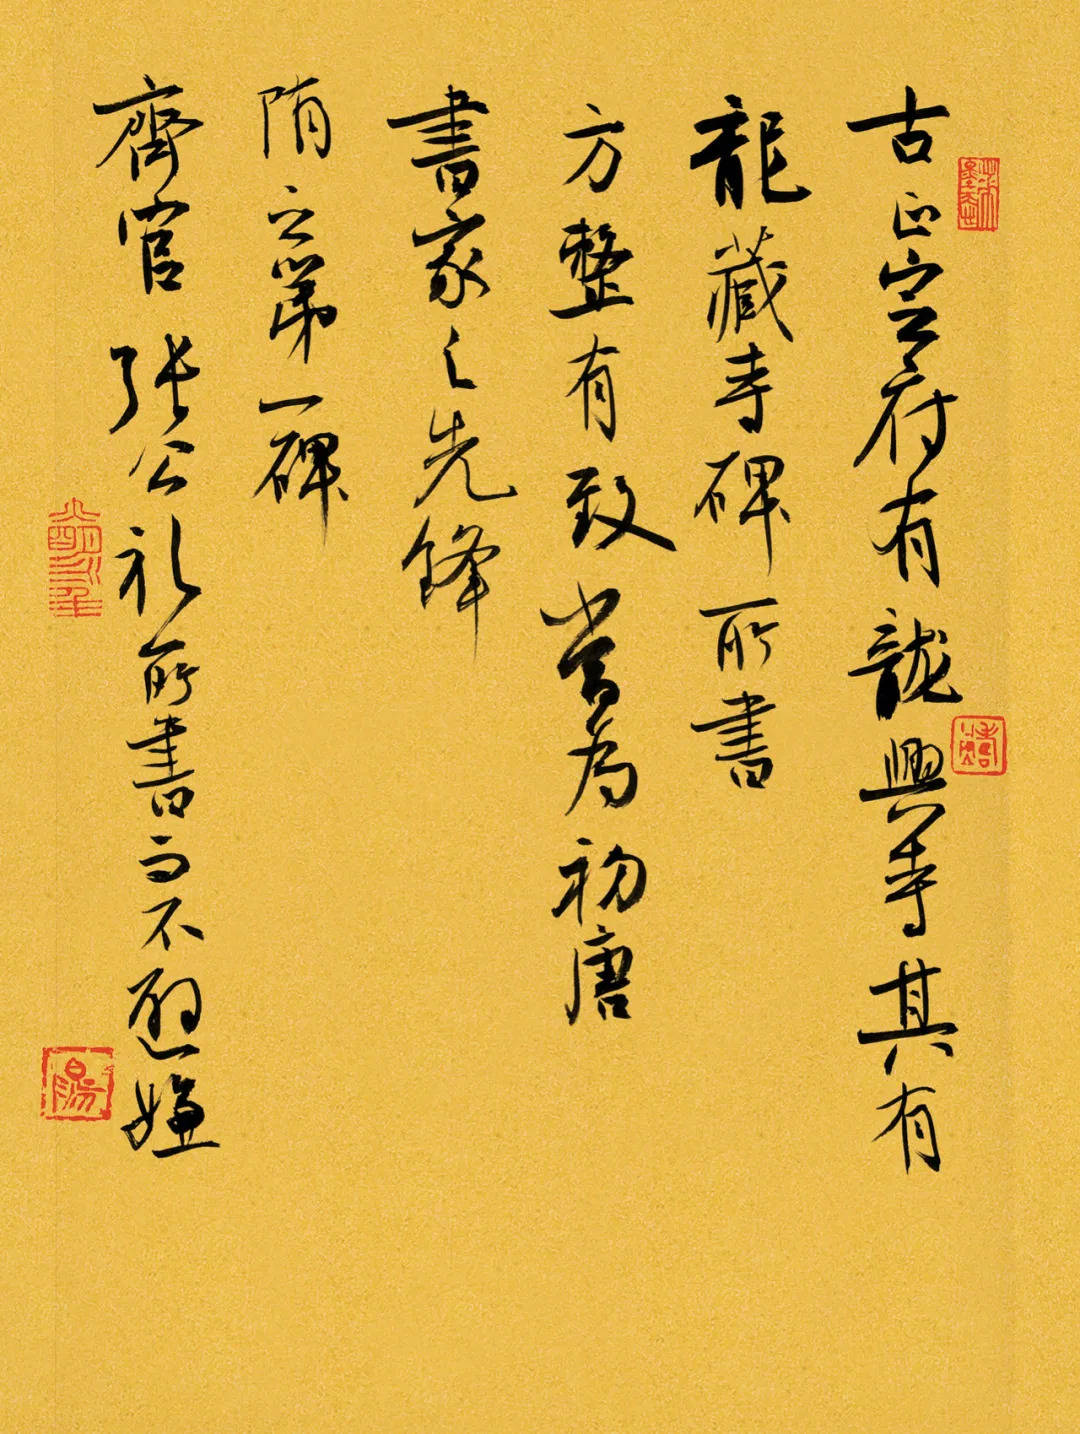 古正定府有龍興寺其有
龍藏寺碑所書
方整有致當為初唐
書家之先鋒
隋之第一碑
齊官張公礼所書而不避嫌